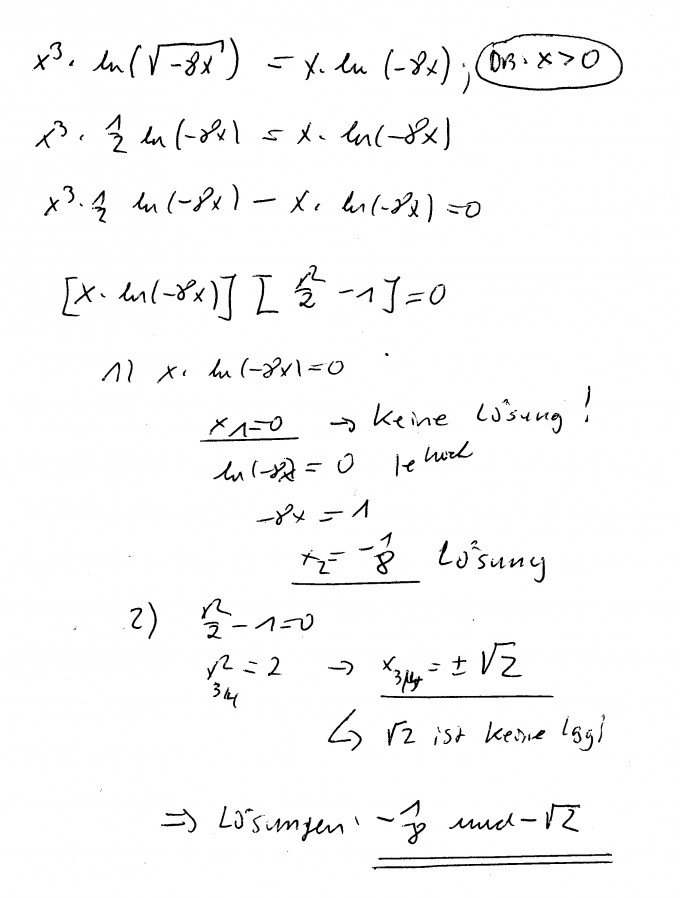 x³ · ln(√-8x) = x · ln (-8x) ; DB: x > 0
x³ · 1/2 ln (-8x) = x · ln(-8x)
x³ · 1/2 ln (-8x) - x · ln(-8x) = 0
[x · ln(-8x)] [x²/2 - 1] = 0
1) x · ln (-8x) = 0
x1 = 0 → keine Lösung!
ln (-8x) = 0 | e hoch
-8x = 1
x2 = -1/8 Lösung
2) x²/2 - 1 = 0
x²3/4 = 2 → x3/4 = ± √2
↳ √2 ist keine Lsg!
⇒ Lösungen: -1/8 und -√2